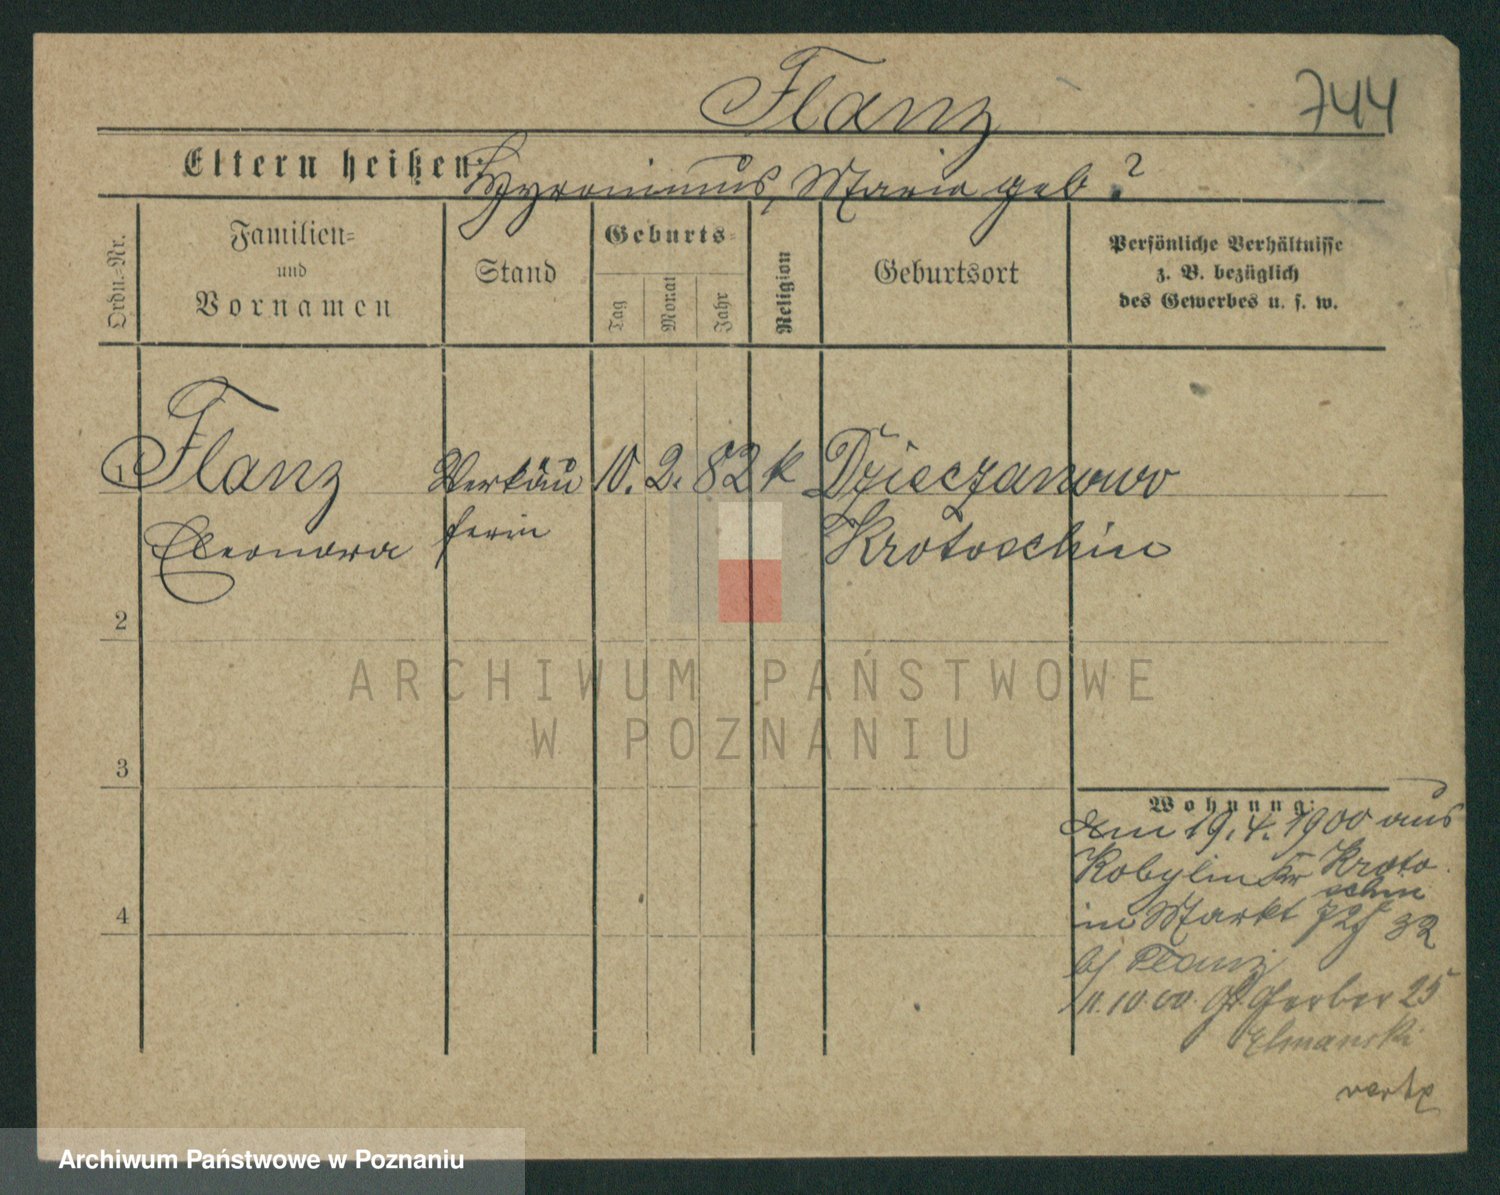 Flanz
744
Eltern heißen:
Hyronimus, Maria geb. ?
Ordn.-Nr.
Familien-
und
Vornamen
Stand
Geburts-
Tag
Monat
Jahr
Religion
Geburtsort
Persönliche Verhältnisse
z. B. bezüglich
des Gewerbes u. s. w.
1 Flanz Verkäu 10. 2. 82 k Dzieczanowo
Eleonora ferin Krotoschin
2
3
4
Wohnung:
am 19.4.1900 aus
Kobylin Kr Kroto
schin
in Markt 32
b/ Flanz
11.10.00. Gr. Gerber 25
Elmanski
ARCHIWUM PAŃSTWOWE
W POZNANIU
Archiwum Państwowe w Poznaniu